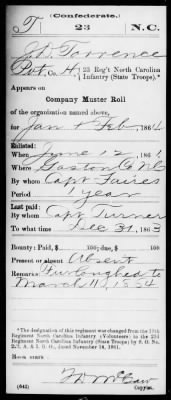 (Confederate.)
T 23 N.C.
J. A. Torrence
Pvt, Co. H, 23 Reg't North Carolina
Infantry (State Troops).*
Appears on
Company Muster Roll
of the organization named above,
for Jan & Feb, 1864.
Enlisted:
When June 12, 1861
Where Gaston Co NC
By whom Capt Faires
Period 1 year
Last paid:
By whom Capt Turner
To what time Dec 31, 1863
Bounty: Paid $ 100; due $ 100
Present or absent Absent
Remarks: Furloughed to
March 11, 1864
*The designation of this regiment was changed from the 13th
Regiment North Carolina Infantry (Volunteers) to the 23d
Regiment North Carolina Infantry (State Troops) by S. O. No.
222, A. & I. G. O., dated November 14, 1861.
Book mark:
(642) Copyist.